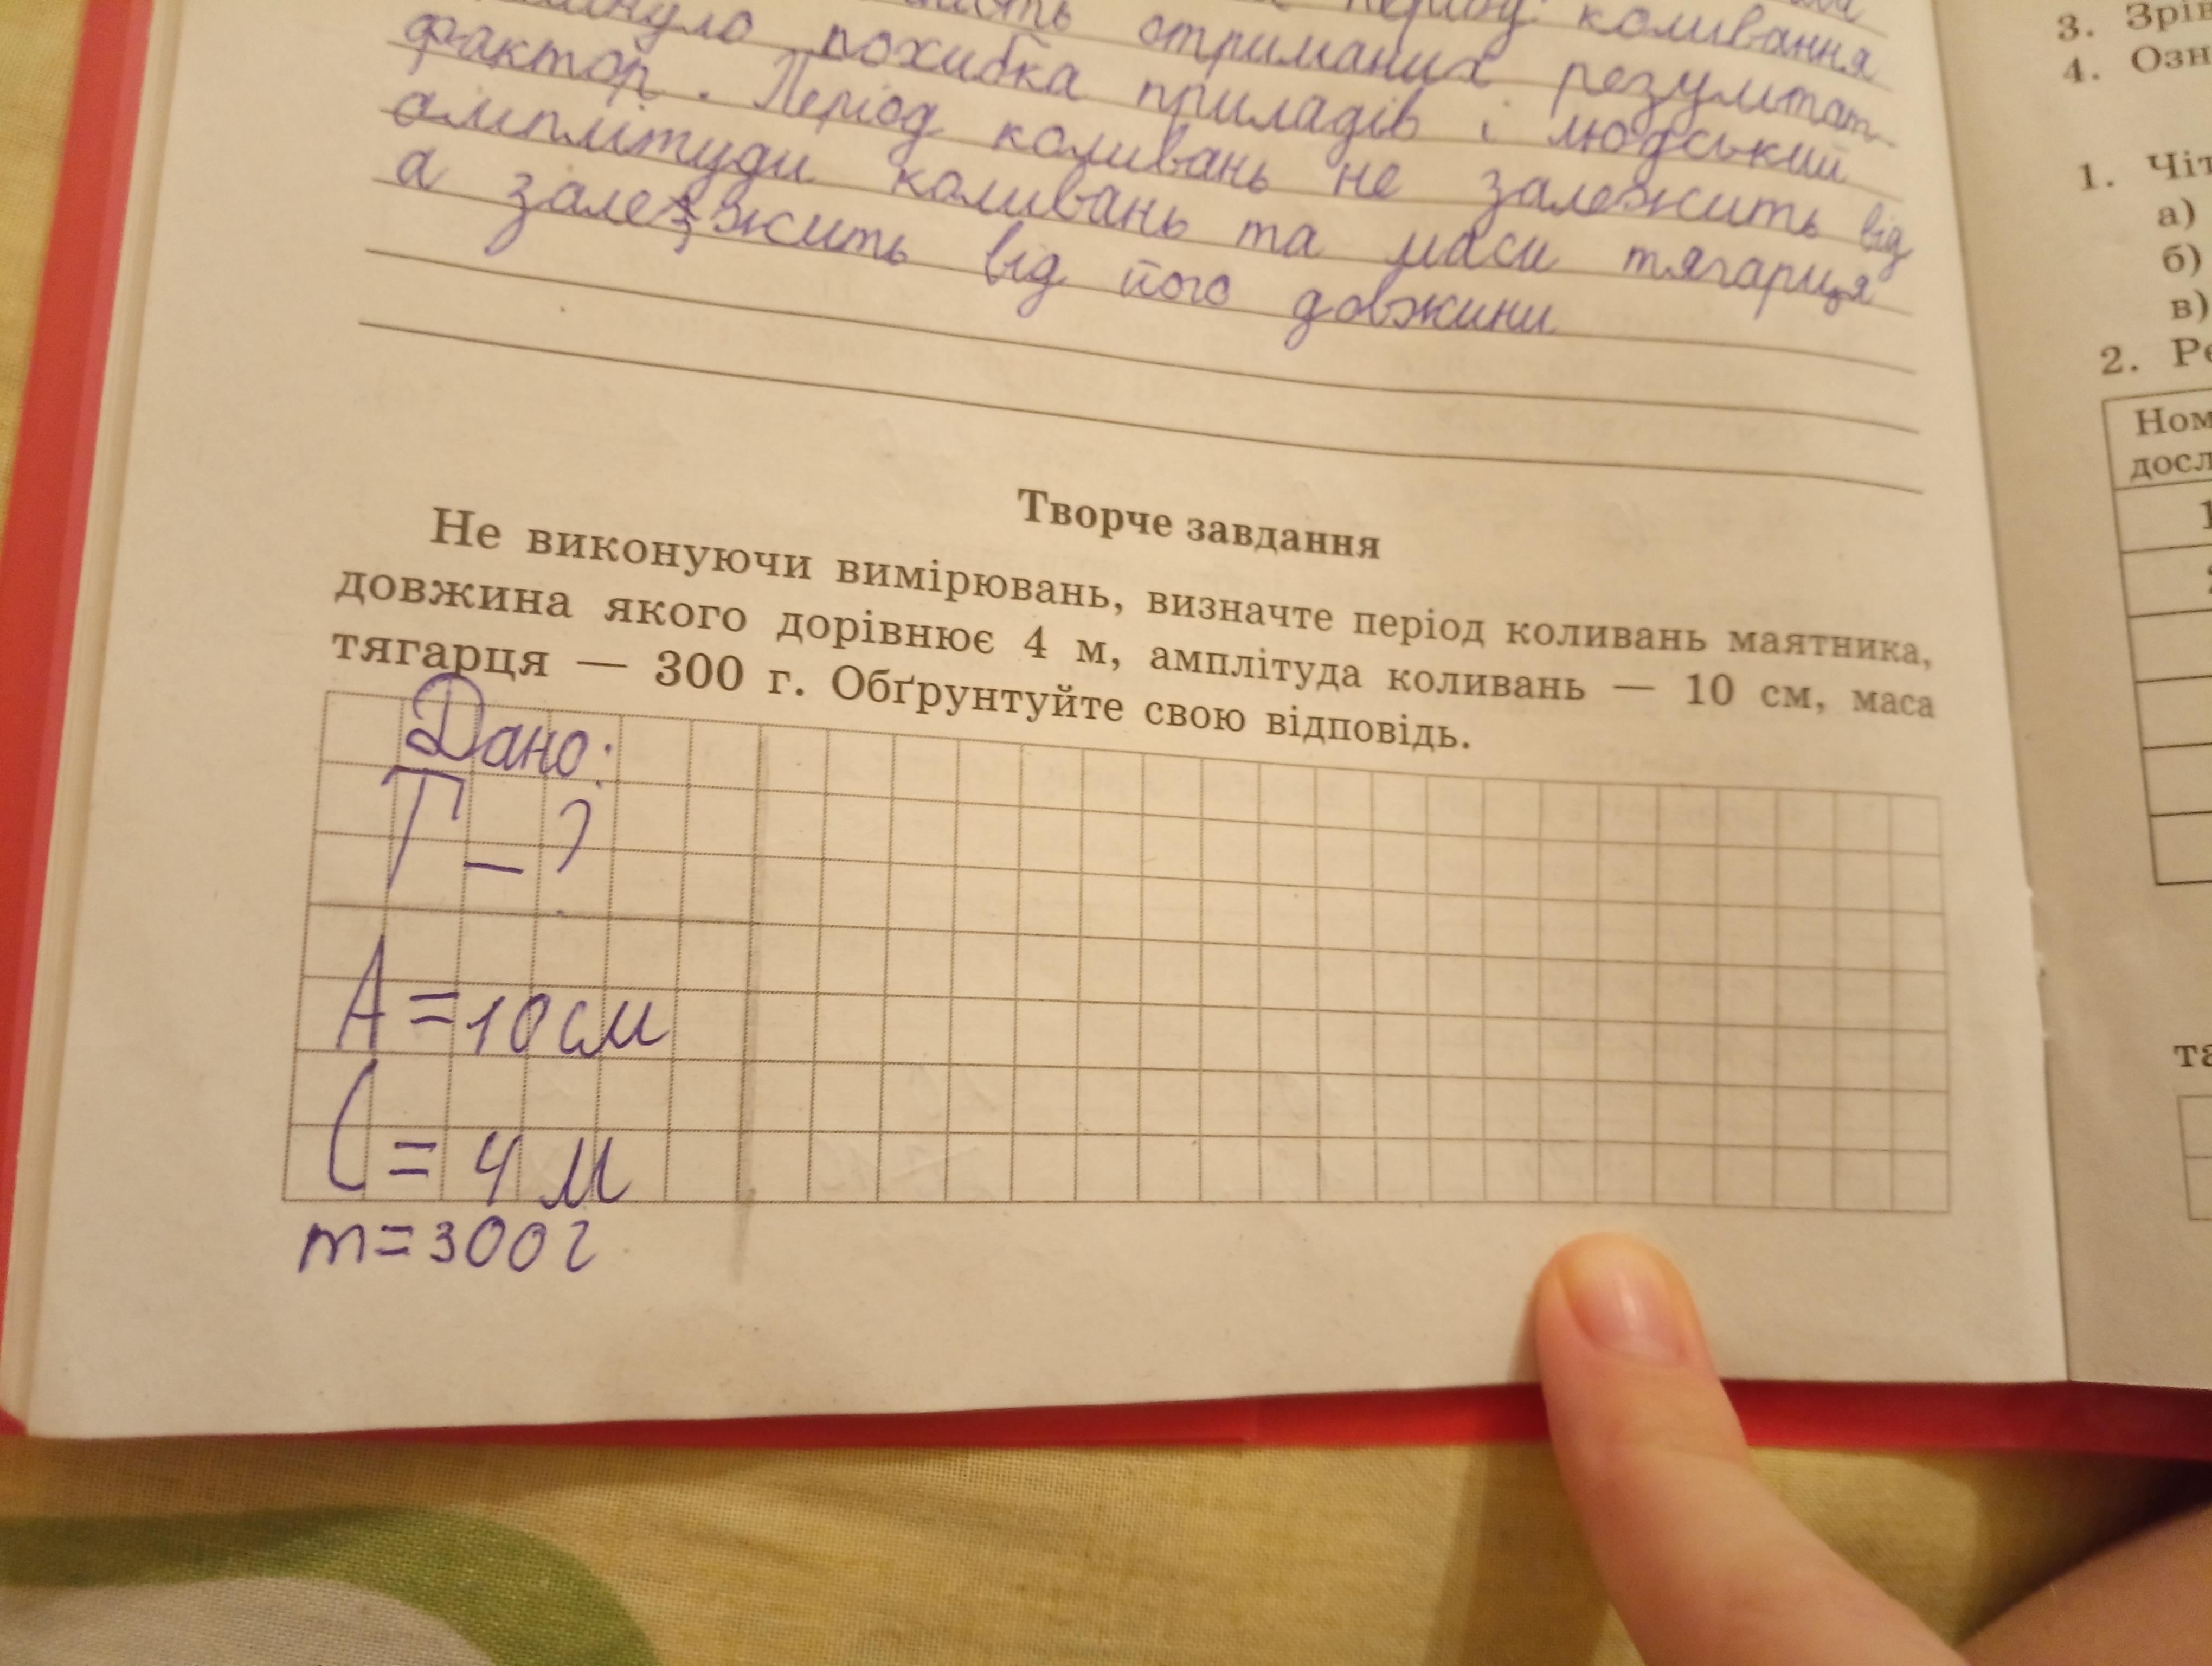 період. коливання
отриманих результат
фактор. похибка приладів і людський
Період коливань не залежить від
амплітуди коливань та маси тягарця
а залежить від його довжини
Творче завдання
Не виконуючи вимірювань, визначте період коливань маятника,
довжина якого дорівнює 4 м, амплітуда коливань — 10 см, маса
тягарця — 300 г. Обґрунтуйте свою відповідь.
Дано:
T - ?
A = 10 см
l = 4 м
m = 300 г
3.
4.
1.
а)
б)
в)
2.
1